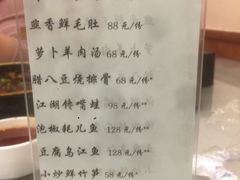 韭香鲜毛肚 88元/份
萝卜羊肉汤 68元/份
腊八豆烧排骨 68元/份*
江湖馋嘴蛙 98元/份**
泡椒耗儿鱼 128元/份**
豆腐乌江鱼 128元/份*
小炒鲜竹笋 58元/份*